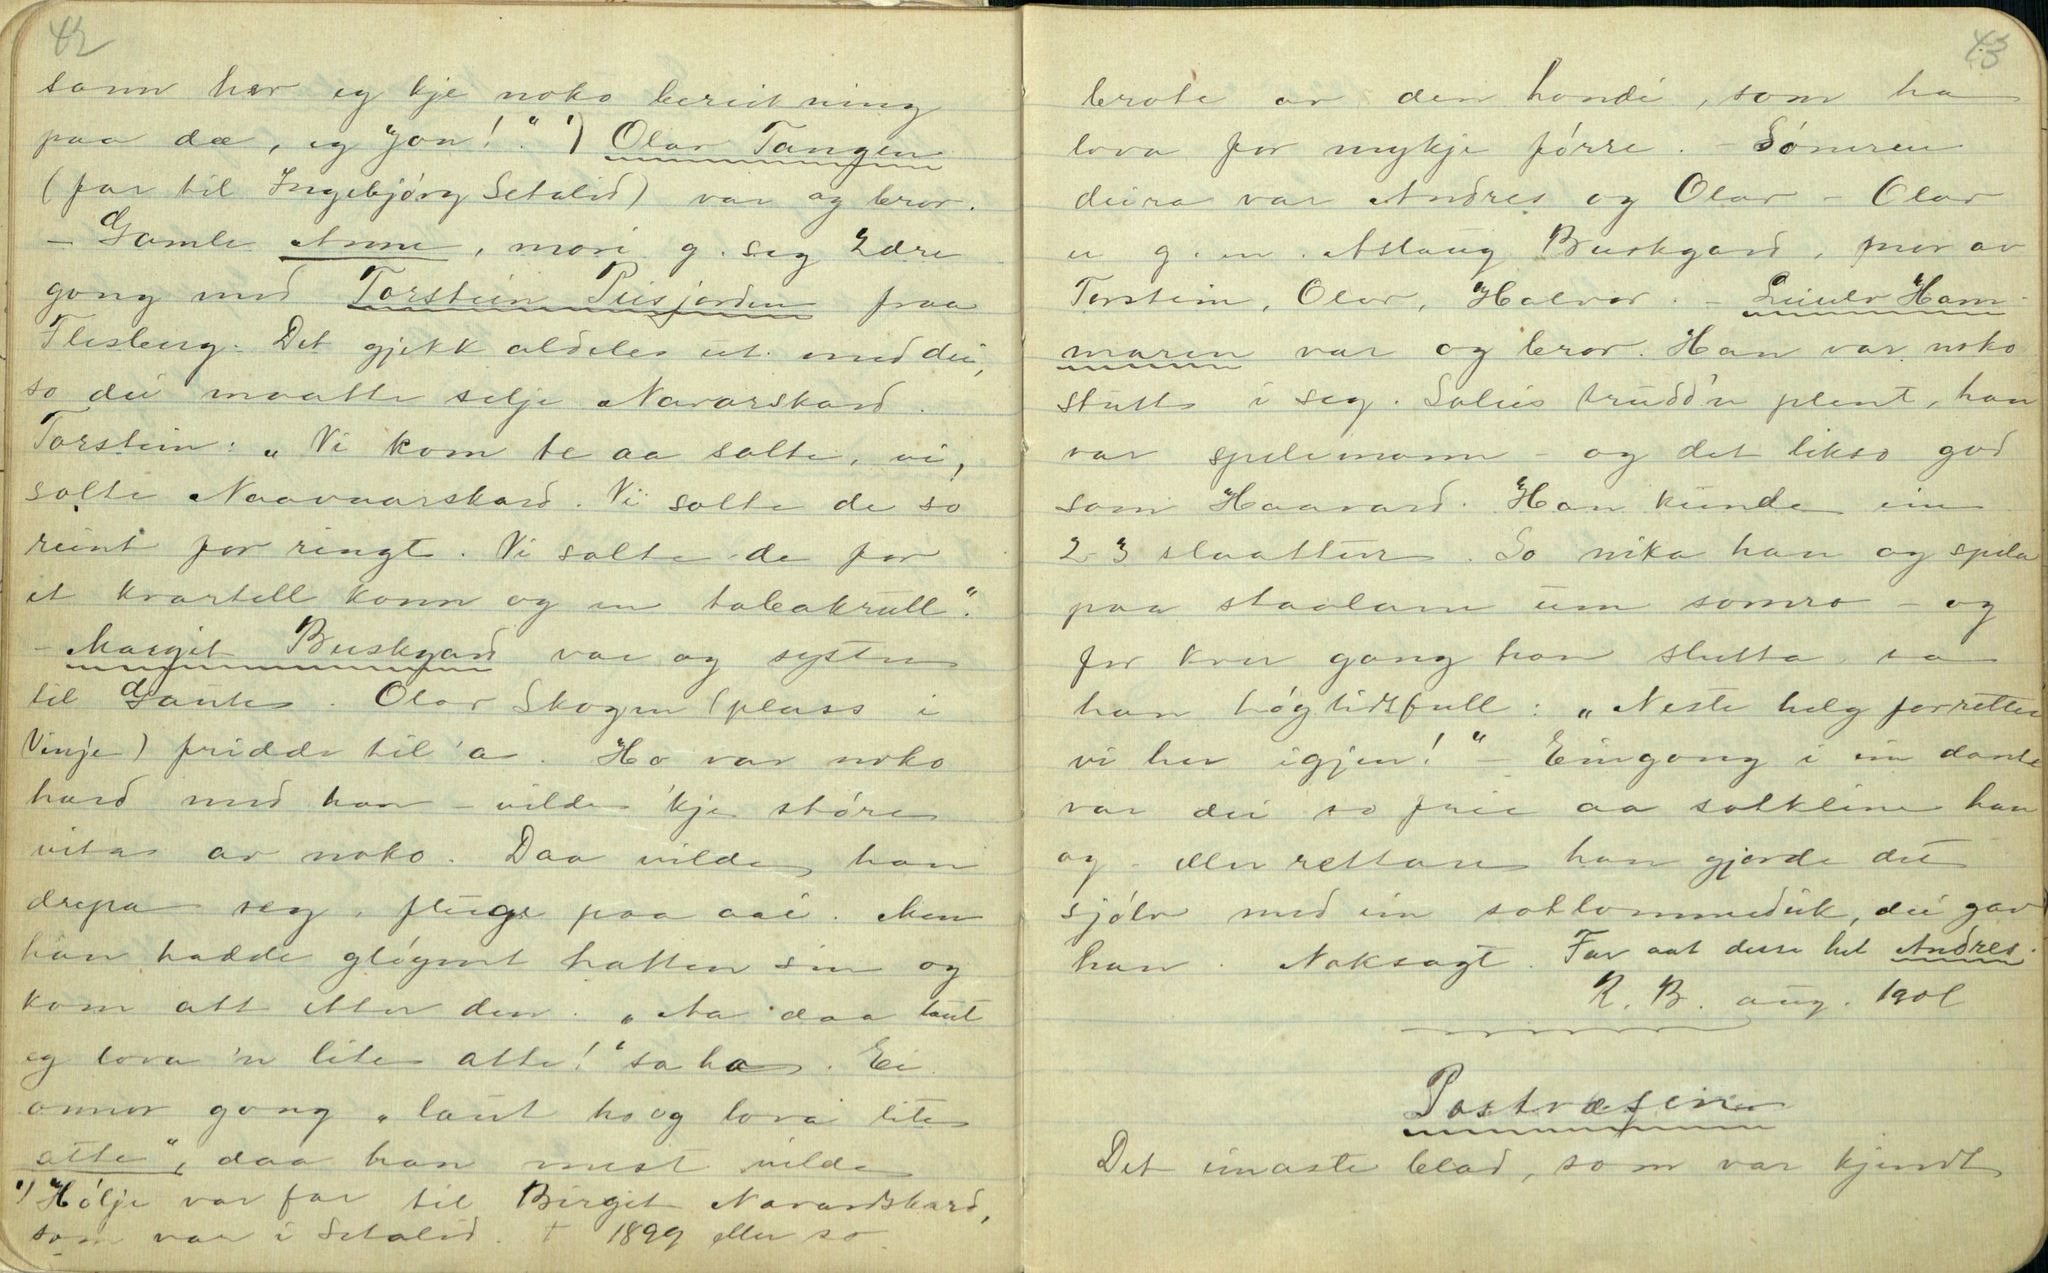 42
sann har eg kje noko bereitning
paa dæ, eg Jon!" ¹) Olav Tangen
(far til Ingebjørg Setalid) var og bror.
- Gamle Anne, mori g. seg 2dre
gong med Torstein Prisjorden fraa
Flesberg. Det gjekk aldeles ut med dei,
so dei maatte selje Navarskard.
Torstein: „Vi kom te aa solte, vi,
solte Naavaarskard. Vi solte de so
reint for ringt. Vi solte de for
et kvartell konn og en tobakrull".
- Margit Buskgard var og syster
til Gaute. Olav Skogen (plass i
Vinje) fridde til 'a. Ho var noko
hard med han - vilde 'kje større
vita av noko. Daa vilde han
drepa seg, fluge paa aai. Men
han hadde gløymt hatten sin og
kom att etter den. „Aa daa laut
eg lova 'n lite atte!" sa ha. Ei
annor gong „laut ho og lova lite
atte", daa han mest vilde
¹) Hølje var far til Birgit Navardskard,
som var i Setalid. † 1899 eller so
43
brote av den hondi, som ha
lova for mykje førre. - Søneren
deira var Andres og Olav - Olav
er g. m. Aslaug Buskgard, mor av
Torstein, Olav, Halvor. - Ham-
maren var og bror. Han var noko
stutt i seg. Soleis trudd'n plent, han
var spelemann - og det likso god
som Haavard. Han kunde ein
2-3 slaatter. So nika han og spela
paa staalom um somro - og
for kvar gong han slutta sa
han høgtidsfull: „Neste helg forretter
vi her igjen!" - Eingong i ein dans
var dei so frie aa sotkline han
og - eller rettare han gjorde det
sjølv med ein sotlommeduk, dei gav
han. Noksagt. Far aat desse het Andres.
R. B. aug. 1901
Postvæsen
Det einaste blad, som var kjendt